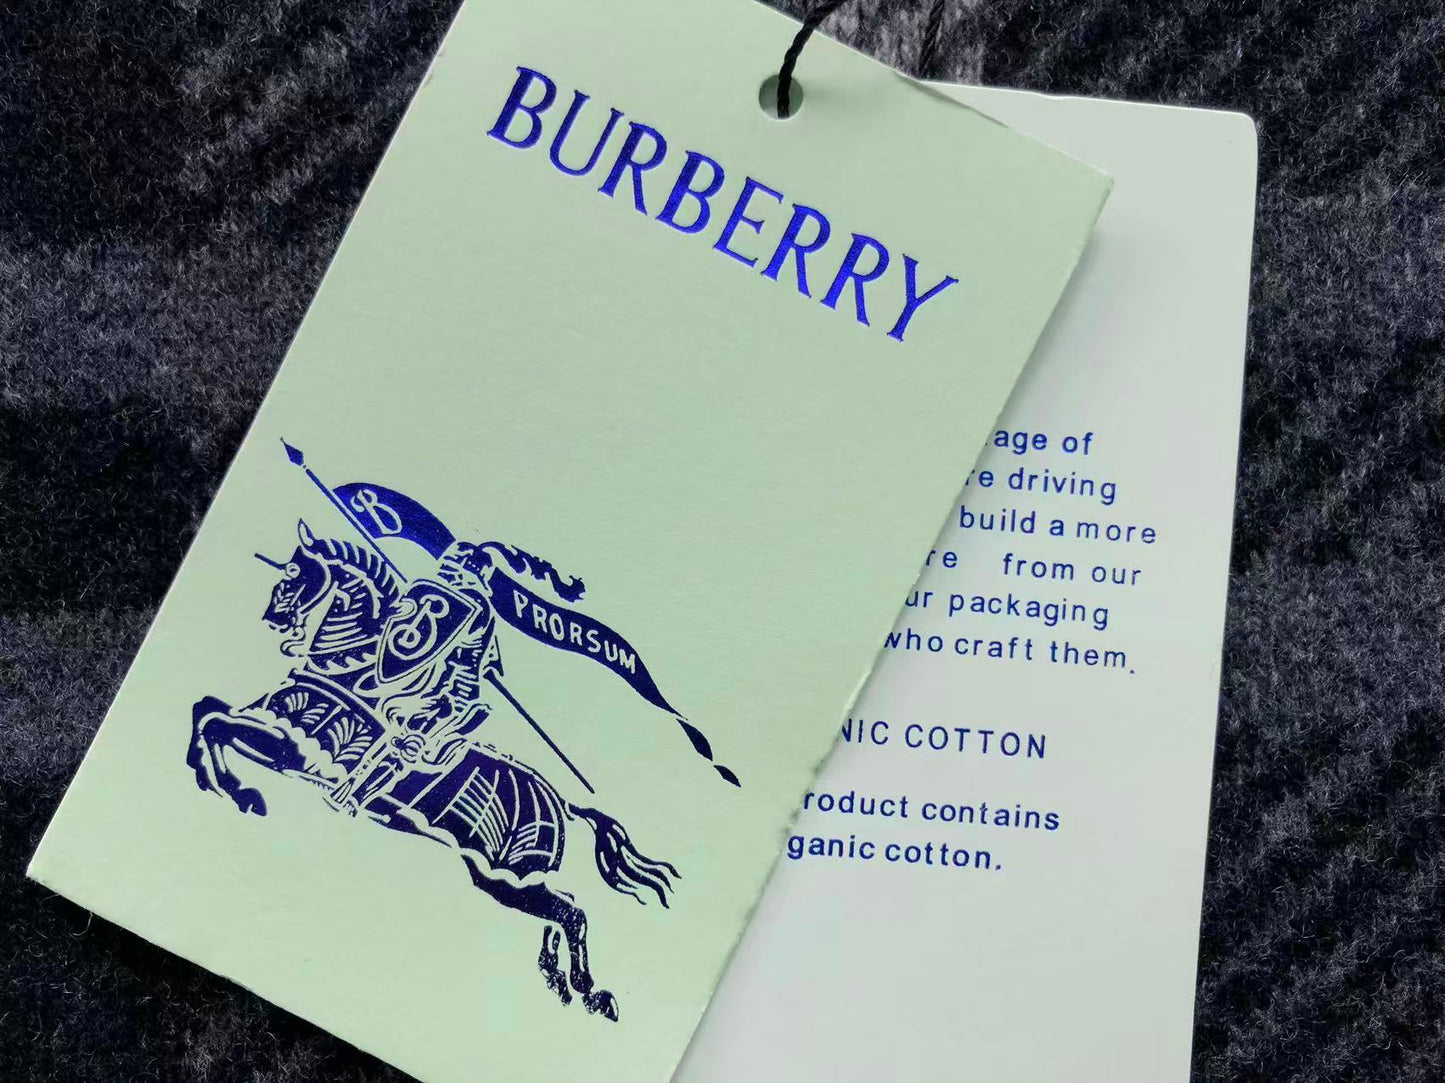 BURBERRY
B
PRORSUM
B
age of
driving
build a more
from our
packaging
who craft them.
COTTON
contains
cotton.